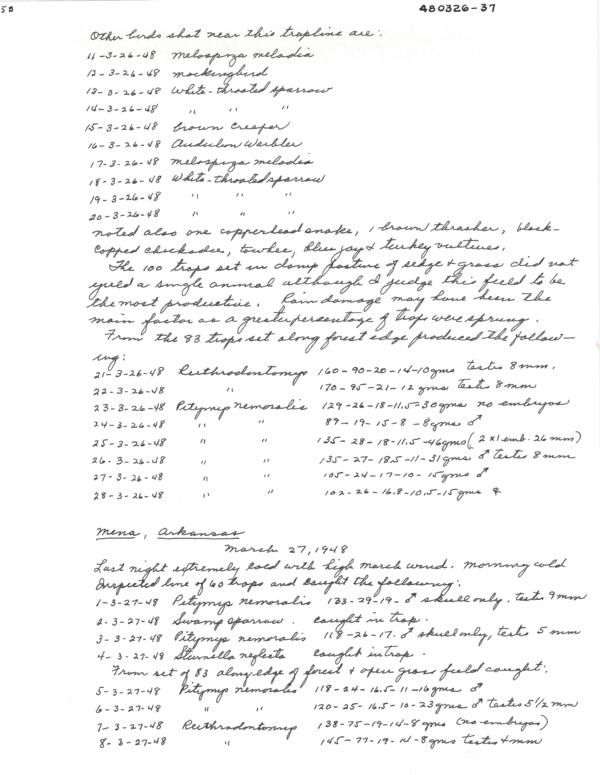 5B
480326-37
Other birds shot near this trapline are:
11-3-26-48 Melospiza melodia
12-3-26-48 mockingbird
13-3-26-48 White-throated sparrow
14-3-26-48 " " "
15-3-26-48 brown creeper
16-3-26-48 Audubon Warbler
17-3-26-48 Melospiza melodia
18-3-26-48 White-throated sparrow
19-3-26-48 " " "
20-3-26-48 " " "
noted also one copperhead snake, 1 brown thrasher, black-
capped chickadee, towhee, blue jay & turkey vultures.
The 100 traps set in damp pasture of sedge & grass did not
yield a single animal although I judge this field to be
the most productive. Rain damage may have been the
main factor as a greater percentage of traps were sprung.
From the 83 traps set along forest edge produced the follow-
ing:
21-3-26-48 Reithrodontomys 160-90-20-14-10gms testes 8mm.
22-3-26-48 " 170-95-21-12 gms testes 8mm
23-3-26-48 Pitymys nemoralis 129-26-18-11.5=30gms no embryos
24-3-26-48 " " 89-19-15-8-8gms ♂
25-3-26-48 " " 135-28-18-11.5-46gms (2x1 emb. 26 mm)
26-3-26-48 " " 135-27-18.5-11-31gms ♂ testes 8mm
27-3-26-48 " " 105-24-17-10-15gms ♂
28-3-26-48 " " 102-26-16.8-10.5-15gms ♀
Mena, Arkansas
March 27, 1948
Last night extremely cold with high March wind. morning cold
Inspected line of 60 traps and caught the following:
1-3-27-48 Pitymys nemoralis 133-29-19-♂ skull only. testes 9mm
2-3-27-48 Swamp sparrow. caught in trap.
3-3-27-48 Pitymys nemoralis 118-26-17. ♂ skull only, testes 5 mm
4-3-27-48 Sturnella neglecta caught in trap.
From set of 83 along edge of forest & open grass field caught:
5-3-27-48 Pitymys nemoralis 118-24-16.5-11-16gms ♂
6-3-27-48 " " 120-25-16.5-10-23gms ♂ testes 5 1/2 mm
7-3-27-48 Reithrodontomys 138-75-19-14-8 gms (no embryos)
8-3-27-48 " 145-77-19-14-8gms testes 4mm